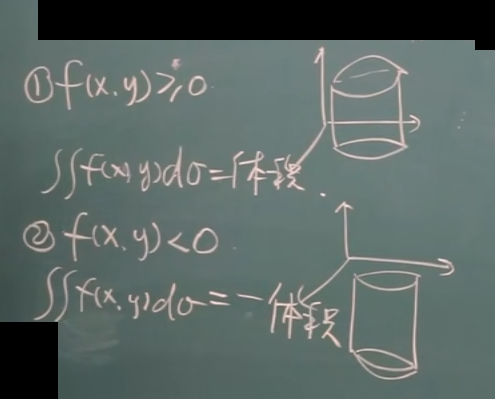 ① f(x,y)≥0
∬f(x,y)dσ=体积.
② f(x,y)<0.
∬f(x,y)dσ=-体积